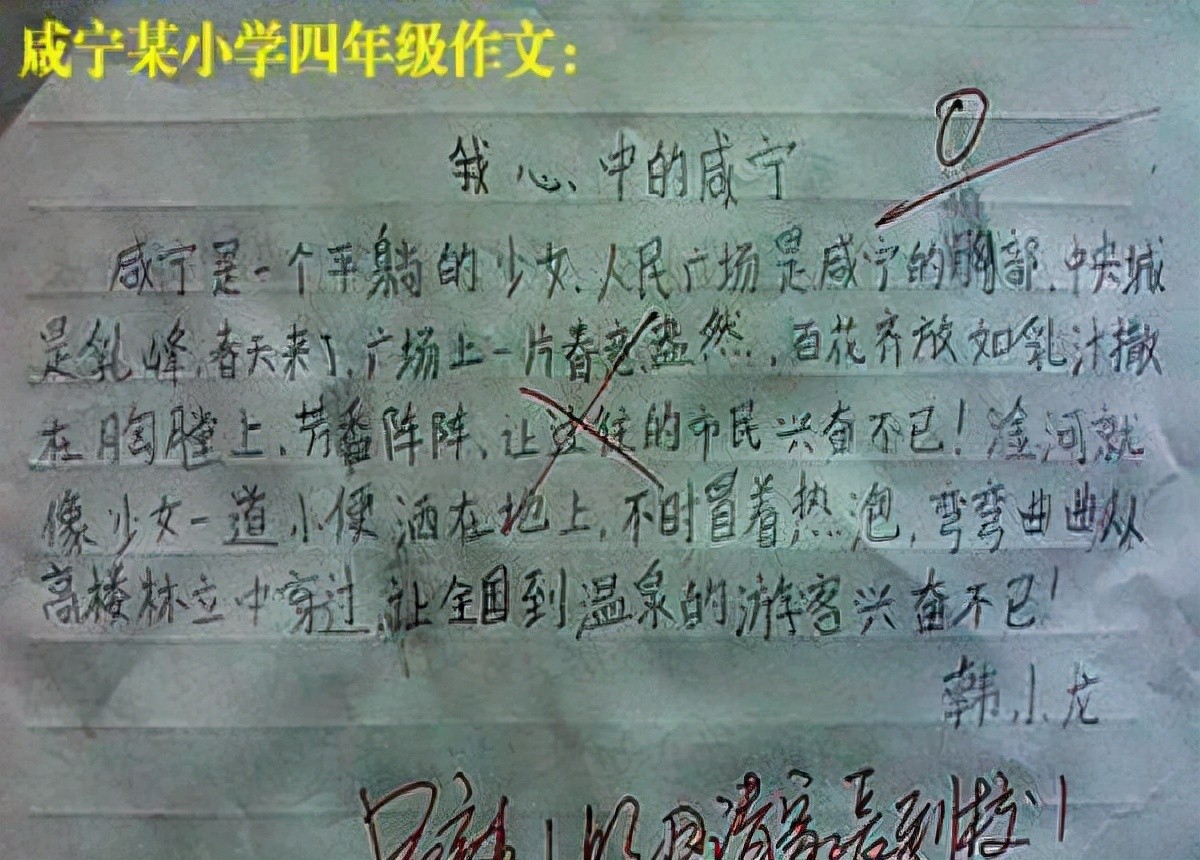 咸宁某小学四年级作文：
0
我心中的咸宁
咸宁是一个平躺的少女，人民广场是咸宁的胸部，中央城
是乳峰，春天来了，广场上一片春意盎然，百花齐放如乳汁撒
在胸膛上，芳香阵阵，让 的市民兴奋不已！淦河就
像少女一道小便洒在地上，不时冒着热泡，弯弯曲曲从
高楼林立中穿过，让全国到温泉的游客兴奋不已！
韩小龙
明日请家长到校！